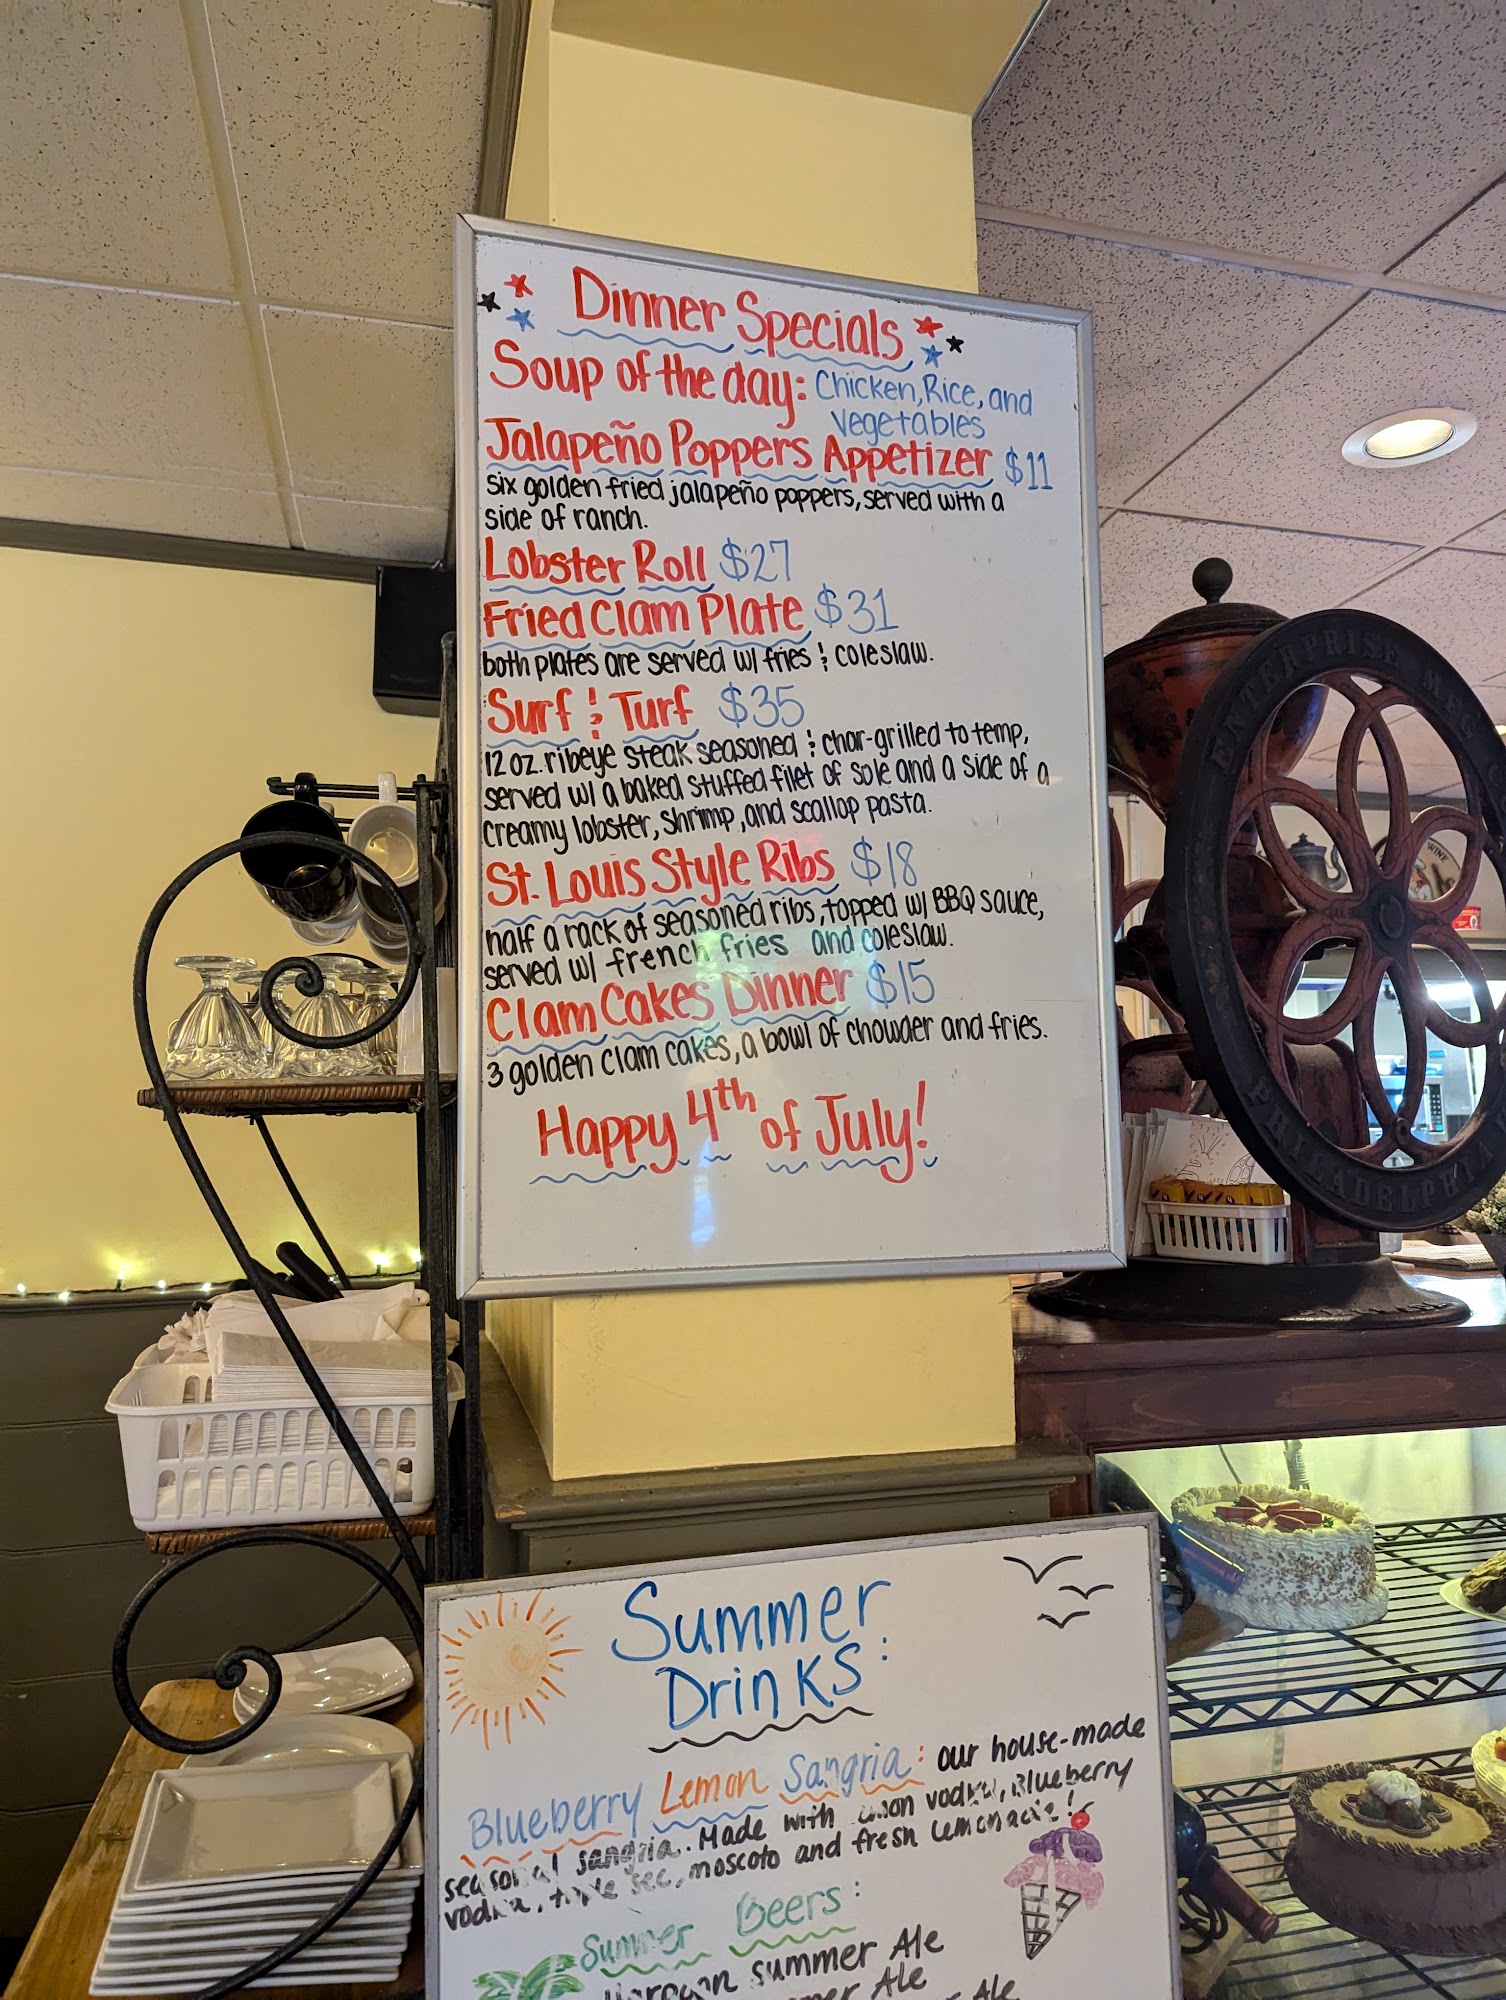 Dinner Specials
Soup of the day: Chicken, Rice, and
Vegetables
Jalapeño Poppers Appetizer $11
six golden fried jalapeño poppers, served with a
side of ranch.
Lobster Roll $27
Fried Clam Plate $31
both plates are served w/ fries & coleslaw.
Surf & Turf $35
12 oz. ribeye steak seasoned & char-grilled to temp,
served w/ a baked stuffed filet of sole and a side of a
creamy lobster, shrimp, and scallop pasta.
St. Louis Style Ribs $18
half a rack of seasoned ribs, topped w/ BBQ sauce,
served w/ french fries and coleslaw.
Clam Cakes Dinner $15
3 golden clam cakes, a bowl of chowder and fries.
Happy 4th of July!
ENTERPRISE MFG
PHILADELPHIA
WINE
Summer
Drinks:
Blueberry Lemon Sangria: our house-made
seasonal sangria. Made with vodka, Blueberry
vodka, triple sec, moscoto and fresh lemonade!
Summer Beers:
summer Ale
Ale
Ale